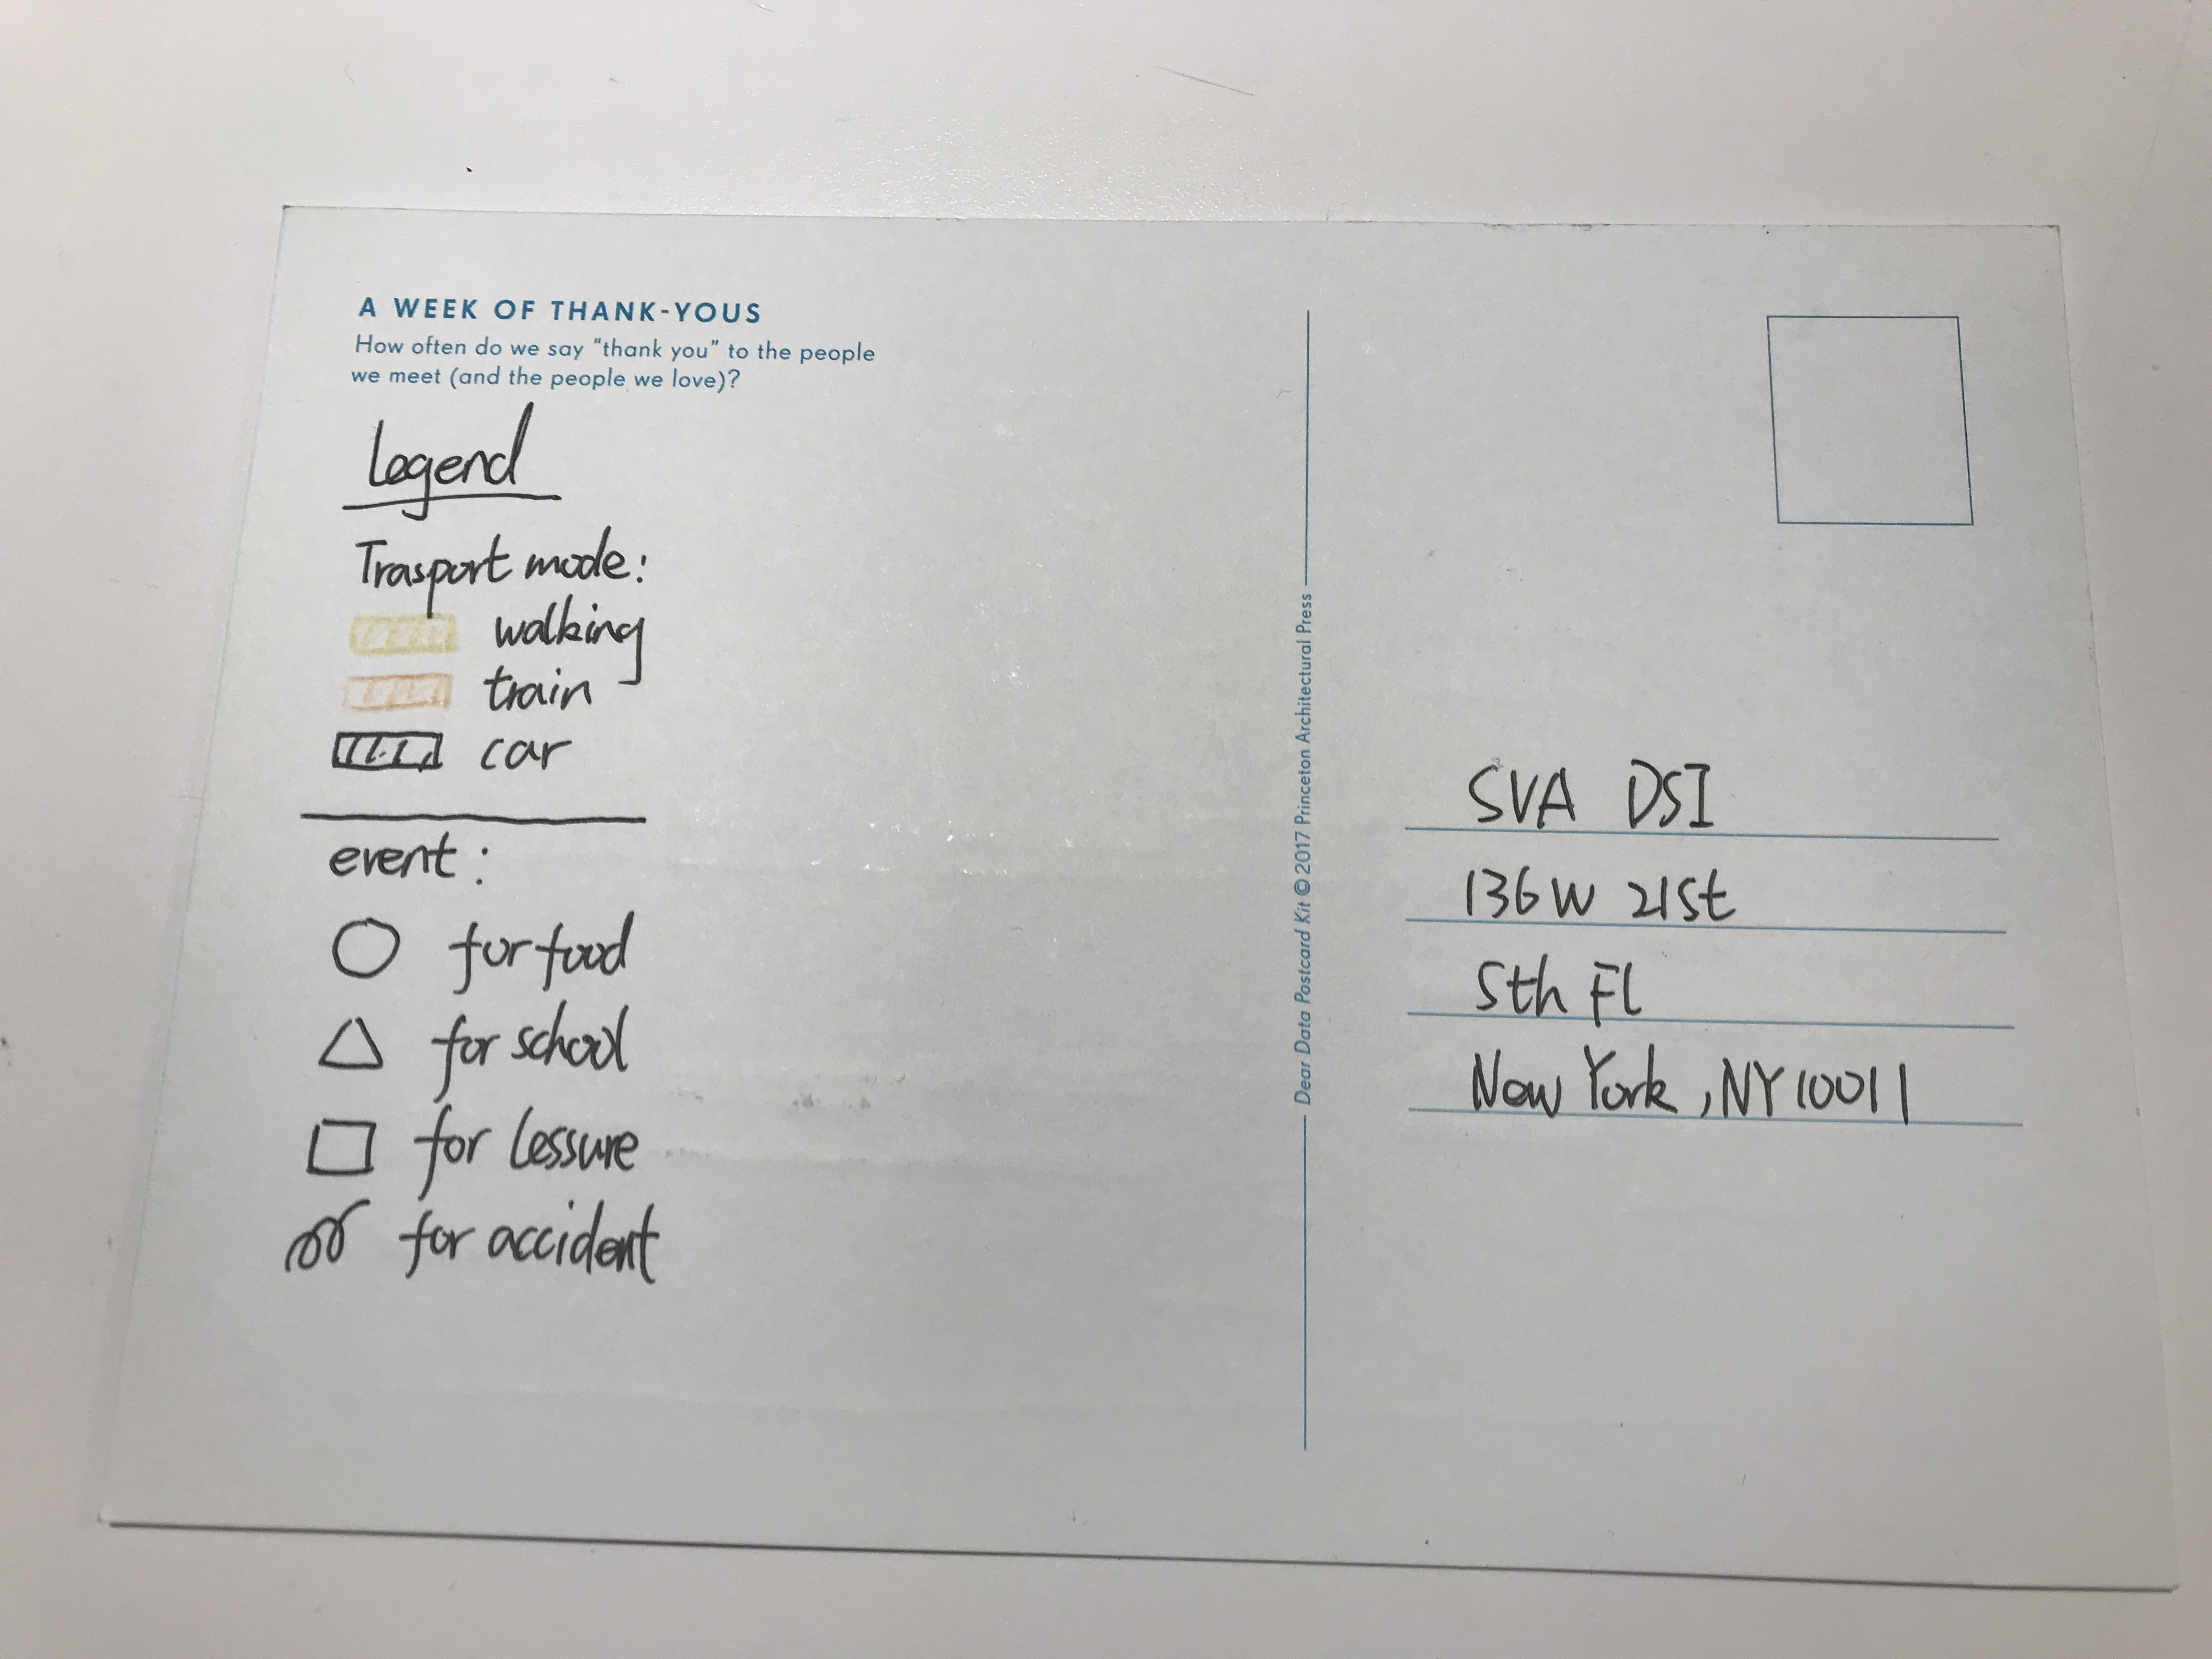 A WEEK OF THANK-YOUS
How often do we say "thank you" to the people
we meet (and the people we love)?
legend
Trasport mode:
walking
train
car
event:
for food
for school
for lessure
for accident
Dear Data Postcard Kit © 2017 Princeton Architectural Press
SVA DSI
136 W 21St
5th FL
New York, NY 10011